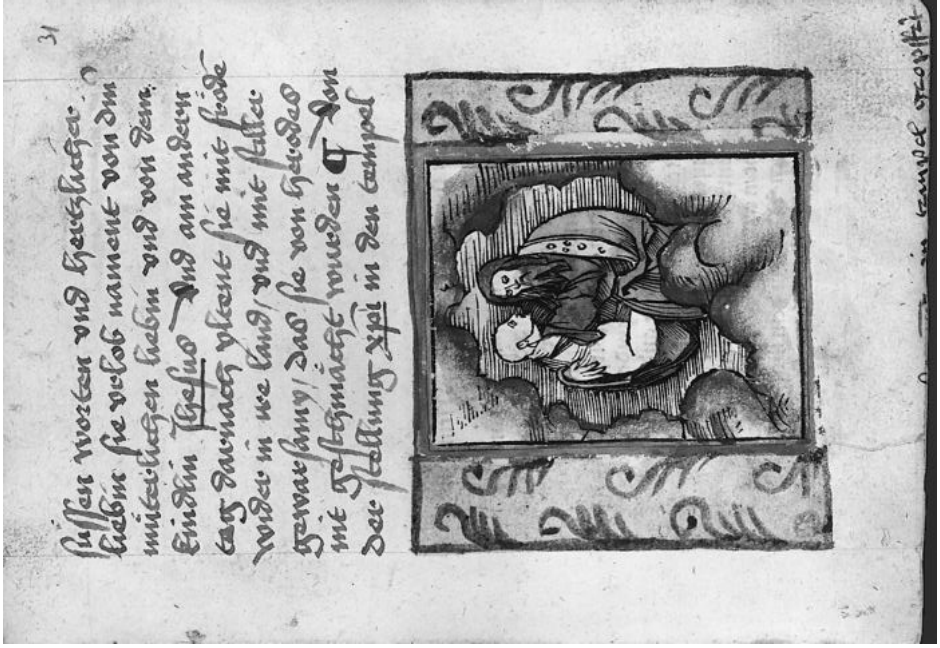 31
süssen worten vnd hertzlicher
liebin sie vrlob nament von dem
miterlichen liebin vnd von dem
kindlin Jhesus Vnd am andern
tag darnach vkent sie mit fröde
wider in ire land / vnd mit stiller
gewarsamy / das sie von herodes
mit geschmächt wurden ¶ Von
der stellung xpi in den tempel